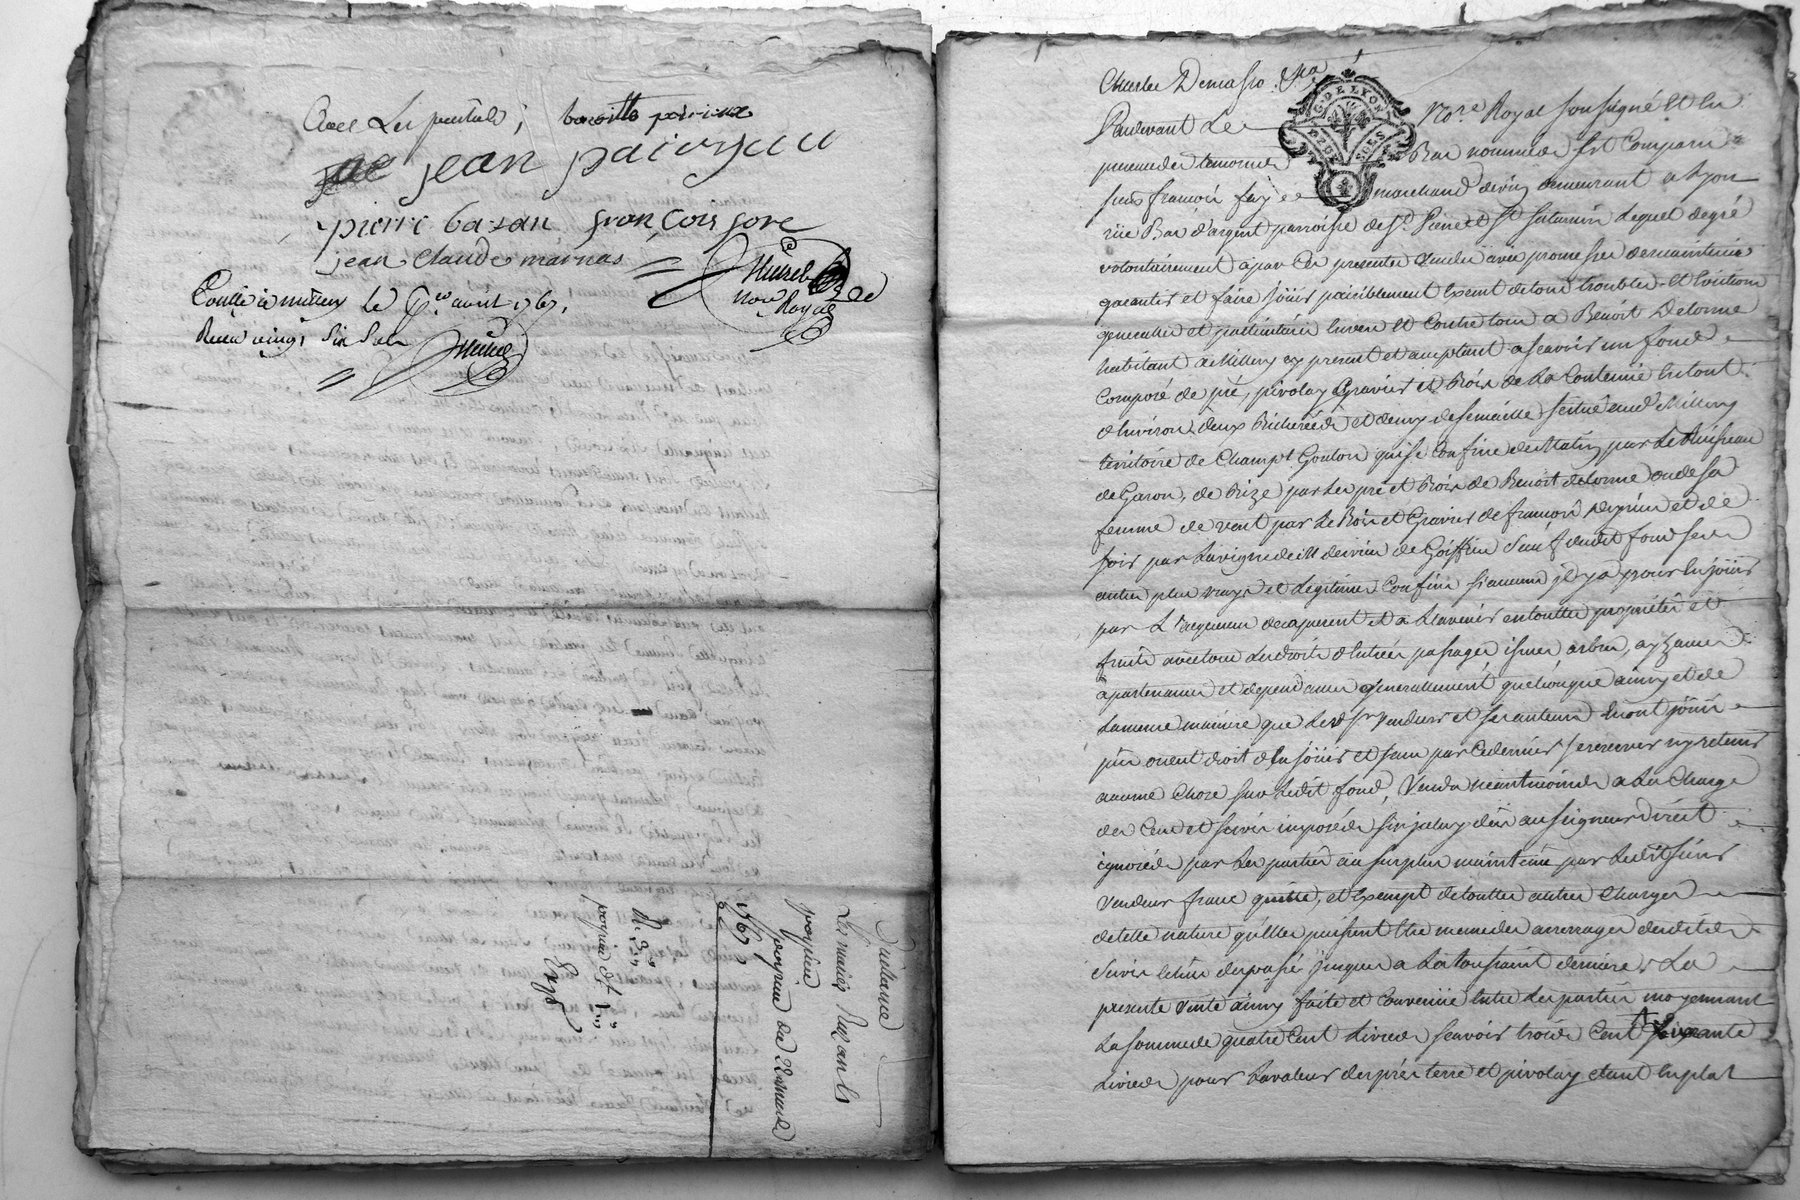 avec Les parties; benoitte poirieux
jean
pierre bazan françois jore
jean claude marnas
Michel
Nore Royal
Contlé a millery Le avril 1767.
Recu vingt Six Sols Michel
quitance
Les mariés
poyzieu
1767
Charles
G. DE LYON
DEUX SOLS
Pardevant Le Nore. Royal soussigné Et En
presence des temoins Bas nommés fut Comparu
sieur françois fay marchand demeurant a Lyon
rüe Bas d'argent parroisse de St. Pierre et St Saturnin Lequel de gré
volontairement a par Ces presentes vendu avec promesses de maintenir
garantir et faire joüir paisiblement Exempt de tous troubles et Evictions
generalles et particulieres Envers Et Contre tous a Benoit Delorme
habitant a Millery cy present et acceptant a scavoir un fond
Composé de pré, pivolay Gravier et Bois de La Contenüe En tout
d'Environ deux Bicherées et demy de semaille situé aud. Millery
territoire de Champt Gouton qui se Confine de Matin par Le Ruisseau
de Garon, de Bize par Les pré et Bois de Benoit delorme ou de sa
femme de vent par Le Bois et Gravier de françois et de
soir par La vigne de de Goiffieu Sauf dudit fond ses
autres plus vrays et Legitimes Confins si aucuns il y a pour En joüir
par L'acquereur des a present et a L'avenir en touttes proprietés et
fruits avec tous Les droits d'Entrées passages issües arbres, ayzances
apartenances et dependances generallement quelconque ainsy et de
La meme maniere que Led. sr. vendeur et ses auteurs En ont joüii
pû ou eut droit d'En joüir et sans par Ce dernier se reserver ny retenir
aucune Chose sur Ledit fond, Vendu neantmoins a La Charge
des Cens et servis imposés sur jceluy dûs au seigneur Direct
ignorés par Les parties au surplus maintenu par Ledit sieur
Vendeur franc quitte, et Exempt de touttes autres Charges
de telle nature qu'Elles puissent Etre meme des arrerages desdits
Servis Echus du passé jusques a La toussaint derniere. La
presente vente ainsy faite et Convenüe Entre Les parties moyennant
La somme de quatre Cent Livres scavoir trois Cent soixante
Livres pour La valeur des prés terre et pivolay etant En plat